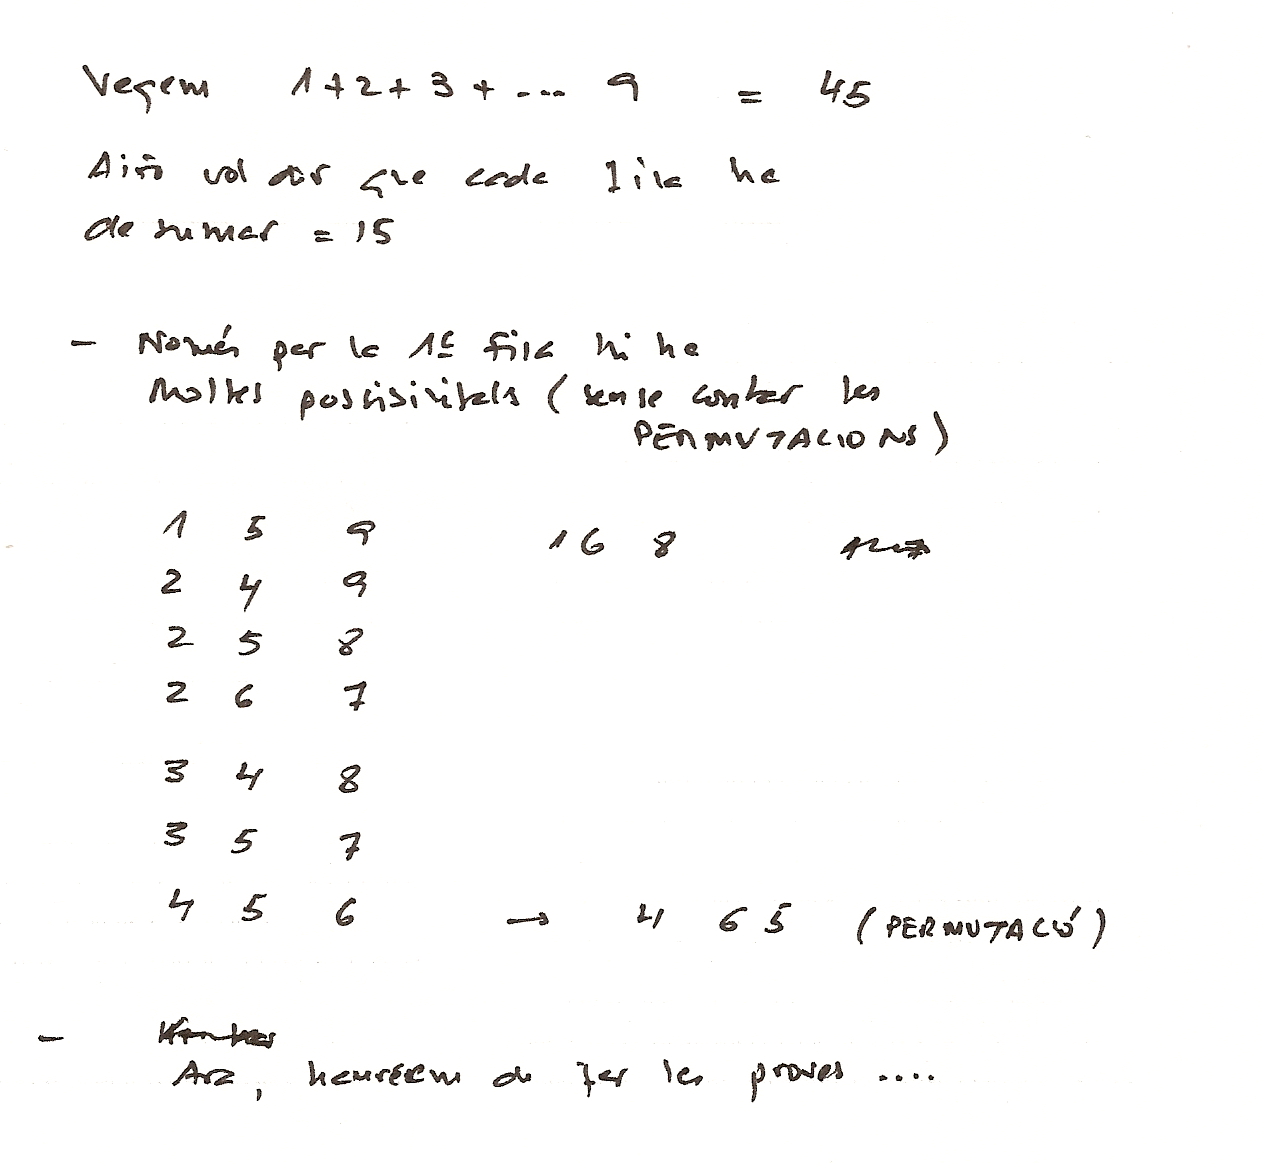 Vegem 1+2+3+... 9 = 45
Això vol dir que cada fila ha
de sumar = 15
- Només per la 1ª fila hi ha
Moltes possibilitats (sense contar les
PERMUTACIONS)
1 5 9 1 6 8
2 4 9
2 5 8
2 6 7
3 4 8
3 5 7
4 5 6 → 4 6 5 (PERMUTACIÓ)
-
Ara, hauríem de fer les proves ....